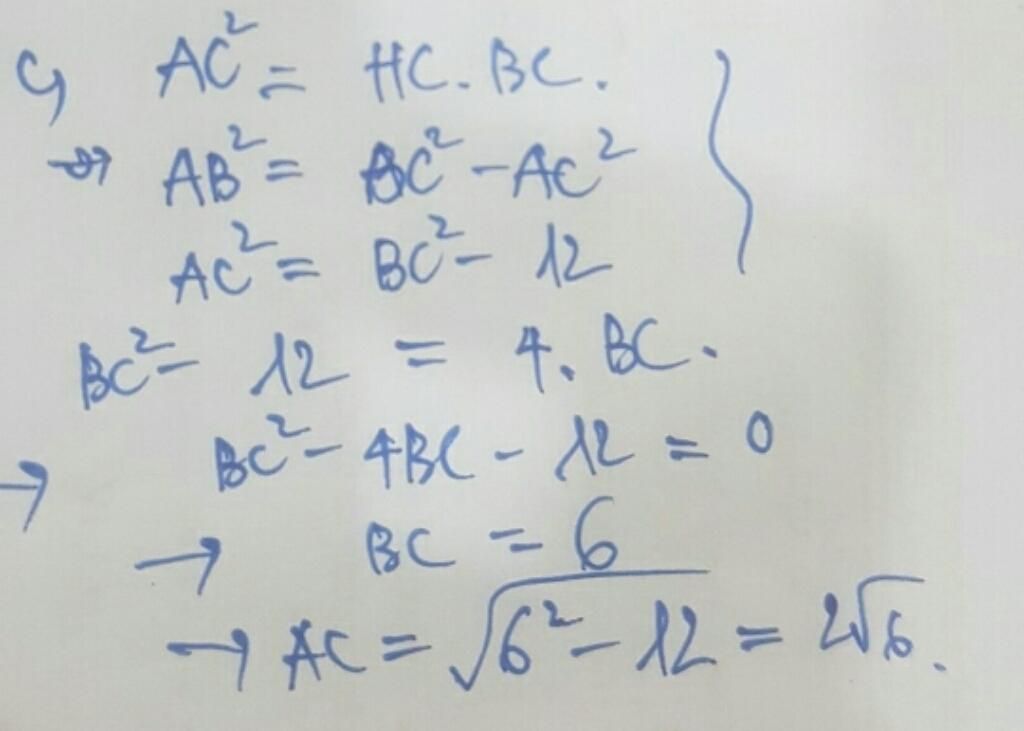 c, AC² = HC. BC.
→ AB² = BC² - AC²
AC² = BC² - 12
BC² - 12 = 4. BC.
→ BC² - 4BC - 12 = 0
→ BC = 6
→ AC = √(6² - 12) = 2√6.